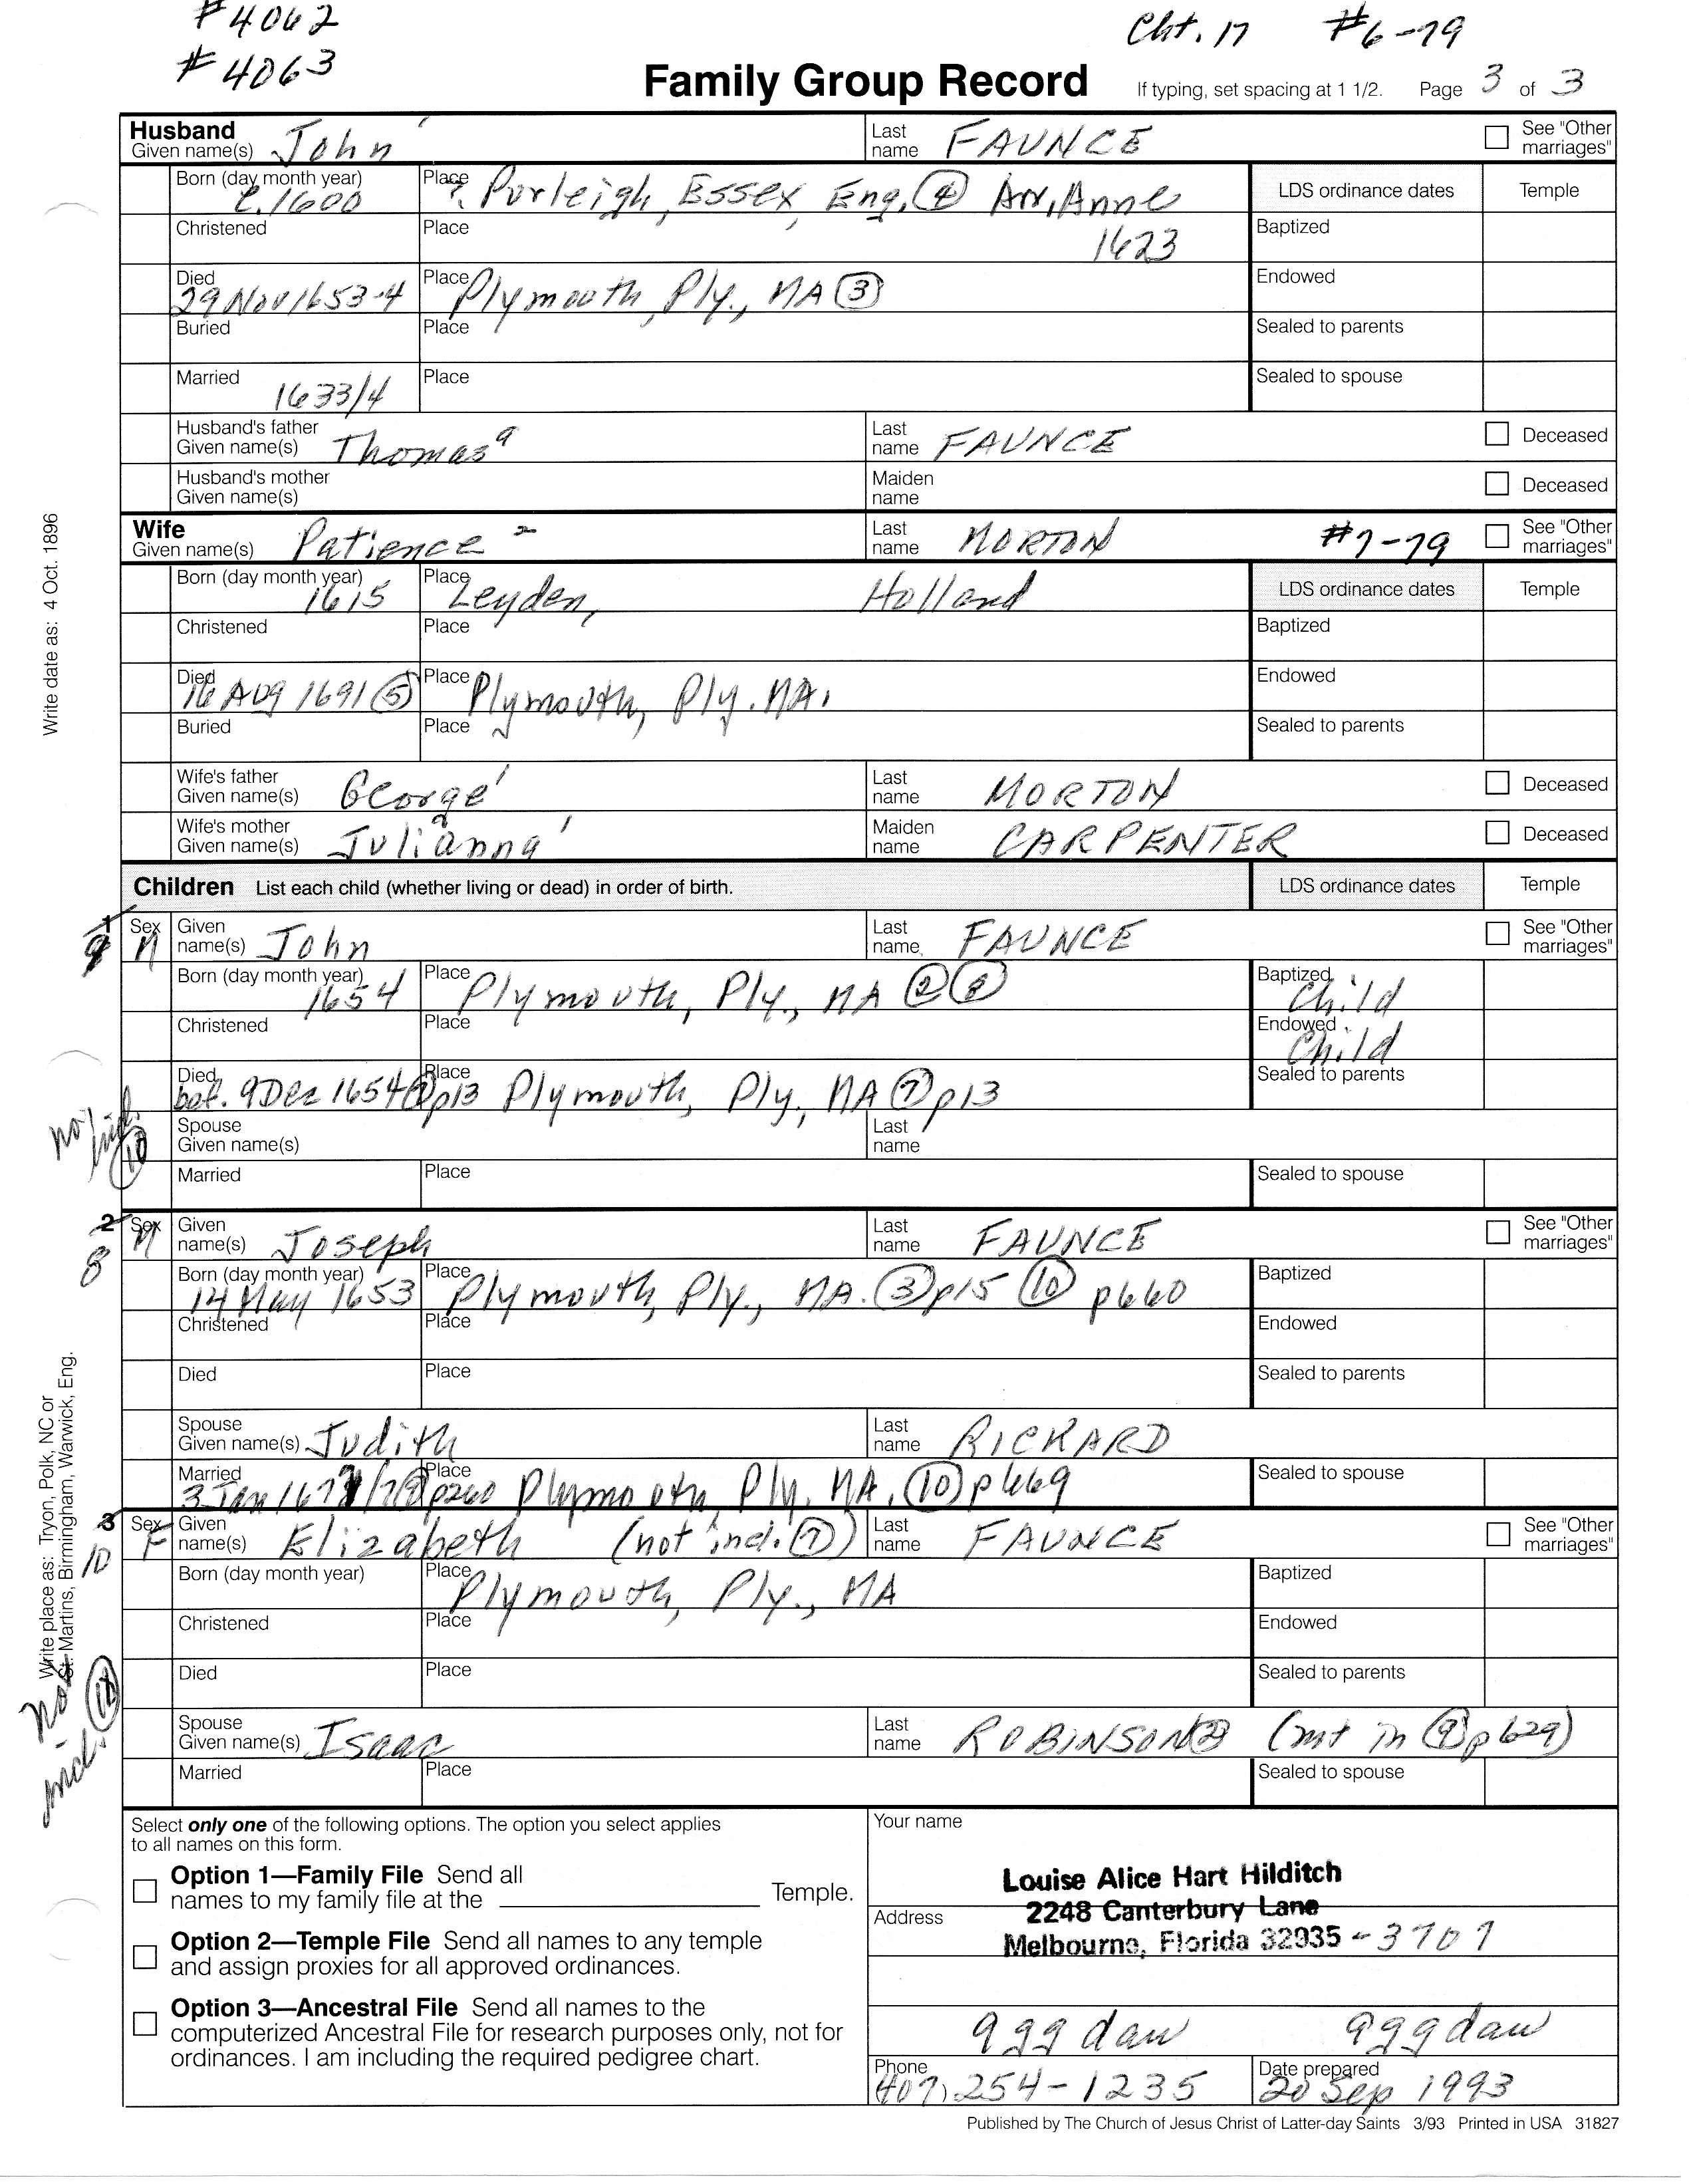 #4062
#4063
Cht. 17 #6-79
Family Group Record If typing, set spacing at 1 1/2. Page 3 of 3
Husband
Given name(s) John ' Last name FAUNCE See "Other marriages"
Born (day month year) c. 1600 Place ? Purleigh, Essex, Eng. (4) Arr, Anne 1623 LDS ordinance dates Temple
Christened Place Baptized
Died 29 Nov 1653-4 Place Plymouth, Ply., MA (3) Endowed
Buried Place Sealed to parents
Married 1633/4 Place Sealed to spouse
Husband's father Given name(s) Thomas a Last name FAUNCE Deceased
Husband's mother Given name(s) Maiden name Deceased
Wife
Given name(s) Patience 2 Last name MORTON #7-79 See "Other marriages"
Born (day month year) 1615 Place Leyden, Holland LDS ordinance dates Temple
Christened Place Baptized
Died 16 Aug 1691 (5) Place Plymouth, Ply. MA. Endowed
Buried Place Sealed to parents
Wife's father Given name(s) George ' Last name MORTON Deceased
Wife's mother Given name(s) Julianna ' Maiden name CARPENTER Deceased
Children List each child (whether living or dead) in order of birth. LDS ordinance dates Temple
1 9 Sex M Given name(s) John Last name FAUNCE See "Other marriages"
Born (day month year) 1654 Place Plymouth, Ply., MA (2) (8) Baptized Child
Christened Place Endowed Child
Died bef. 9 Dec 1654 (7) p13 Place Plymouth, Ply., MA (7) p13 Sealed to parents
no (10)
Spouse Given name(s) Last name
Married Place Sealed to spouse
2 8 Sex M Given name(s) Joseph Last name FAUNCE See "Other marriages"
Born (day month year) 14 May 1653 Place Plymouth, Ply., MA. (3) p15 (10) p660 Baptized
Christened Place Endowed
Died Place Sealed to parents
Spouse Given name(s) Judith Last name RICKARD
Married 3 Jan p260 Place Plymouth, Ply. MA. (10) p469 Sealed to spouse
3 10 Sex F Given name(s) Elizabeth (not incl. (7)) Last name FAUNCE See "Other marriages"
Born (day month year) Place Plymouth, Ply., MA Baptized
Christened Place Endowed
Died Place Sealed to parents
Not incl.
Spouse Given name(s) Isaac Last name ROBINSON (2) (not in (9) p629)
Married Place Sealed to spouse
Write date as: 4 Oct. 1896
Write place as: Tryon, Polk, NC or
St. Martins, Birmingham, Warwick, Eng.
Select only one of the following options. The option you select applies
to all names on this form.
Option 1—Family File Send all
names to my family file at the Temple.
Option 2—Temple File Send all names to any temple
and assign proxies for all approved ordinances.
Option 3—Ancestral File Send all names to the
computerized Ancestral File for research purposes only, not for
ordinances. I am including the required pedigree chart.
Your name
Louise Alice Hart Hilditch
Address 2248 Canterbury Lane
Melbourne, Florida 32935-3707
9gg daw 9gg daw
Phone (407) 254-1235 Date prepared 20 Sep 1993
Published by The Church of Jesus Christ of Latter-day Saints 3/93 Printed in USA 31827